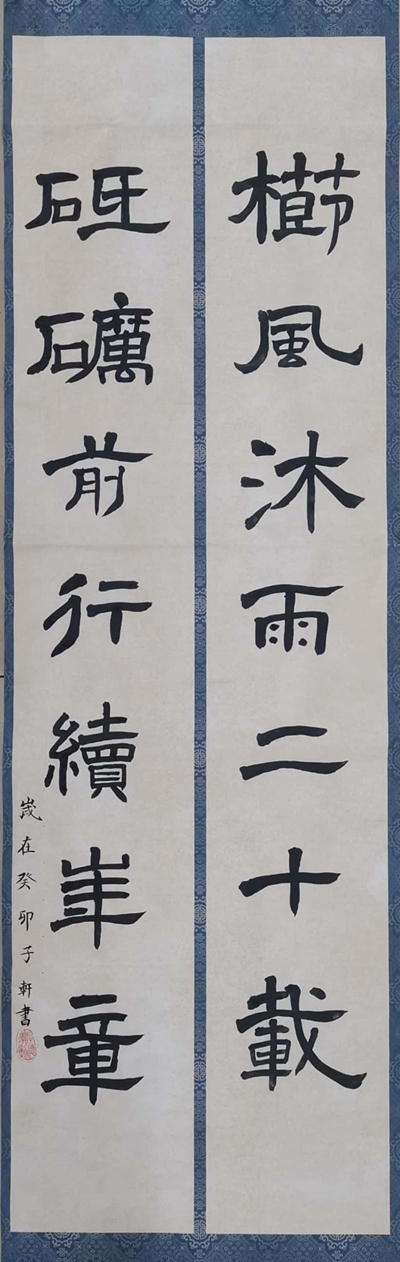 櫛風沐雨二十載
砥礪前行續華章
歲在癸卯子軒書